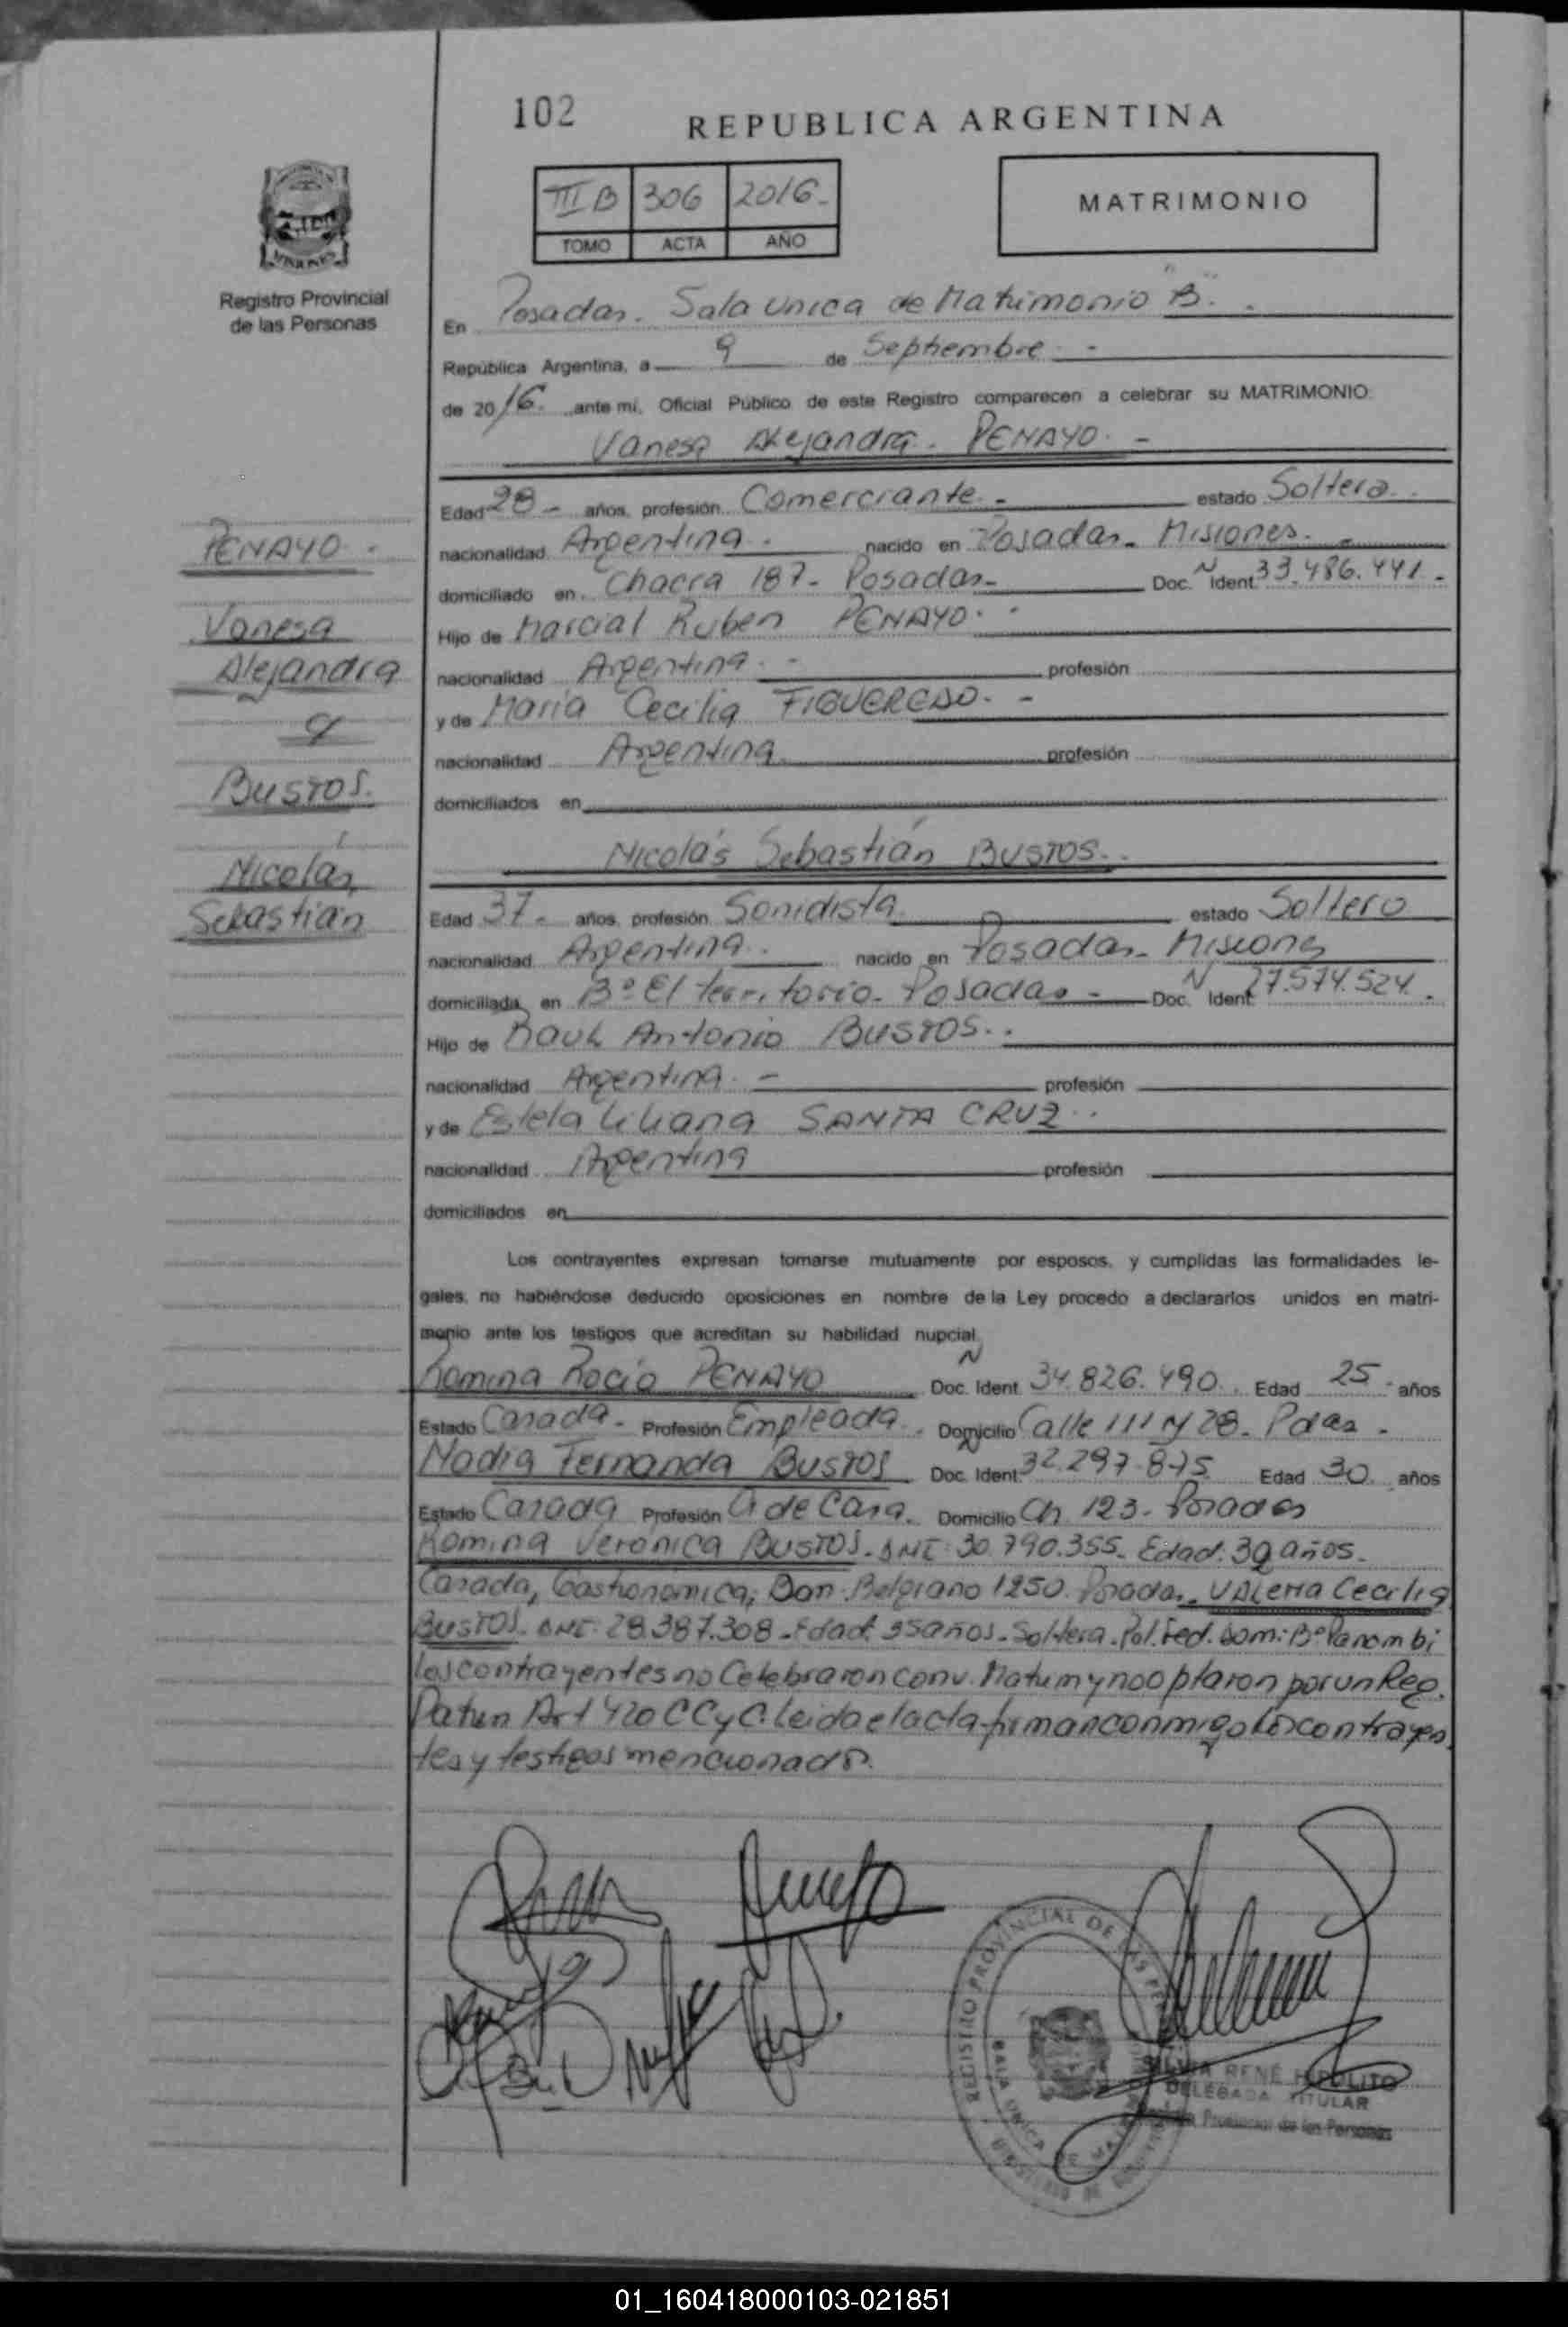 102
REPUBLICA ARGENTINA
III B 306 2016.-
TOMO ACTA AÑO
MATRIMONIO
MISIONES
Registro Provincial
de las Personas
En Posadas. Sala Unica de Matrimonio "B".
República Argentina, a 9 de Septiembre -
de 2016. ante mi, Oficial Público de este Registro comparecen a celebrar su MATRIMONIO:
Vanesa Alejandra. PENAYO. -
Edad 28 - años, profesión Comerciante. - estado Soltera.
nacionalidad Argentina. nacido en Posadas. Misiones. -
domiciliado en Chacra 187- Posadas- Doc. Ident. N 33.486.441.-
Hijo de Marcial Ruben PENAYO.
nacionalidad Argentina. - profesión
y de Maria Cecilia FIGUEREDO. -
nacionalidad Argentina profesión
domiciliados en
PENAYO.
Vanesa
Alejandra
BUSTOS.
Nicolás
Sebastián
Nicolás Sebastián BUSTOS.
Edad 37- años, profesión Sonidista estado Soltero
nacionalidad Argentina. nacido en Posadas- Misiones
domiciliada en Bº El territorio- Posadas- Doc. Ident. N 27.574.524.
Hijo de Raul Antonio BUSTOS.
nacionalidad Argentina. - profesión
y de Estela Liliana SANTA CRUZ.
nacionalidad Argentina profesión
domiciliados en
Los contrayentes expresan tomarse mutuamente por esposos, y cumplidas las formalidades le-
gales, no habiéndose deducido oposiciones en nombre de la Ley procedo a declararlos unidos en matri-
monio ante los testigos que acreditan su habilidad nupcial
Romina Rocio PENAYO Doc. Ident N 34.826.490. Edad 25- años
Estado Casada- Profesión Empleada. Domicilio Calle 111 N 28- Pdas -
Nadia Fernanda BUSTOS Doc. Ident. N 32.297.875 Edad 30 años
Estado Casada Profesión A de Casa. Domicilio Ch. 123- Posadas
Romina Veronica BUSTOS. DNI: 30.790.355- Edad: años-
Casada, Gastronómica, Dom. Belgrano 1250. Posadas- Valeria Cecilia
BUSTOS. DNI: 28.387.308- Edad: 35 años- Soltera. Pol. Fed. Dom: Bº Panambi
los contrayentes no Celebraron conv. Matrim y no optaron por un Reg.
Patrim Art 420 CC y C. Leida el acta firman conmigo los contrayen
tes y testigos mencionados.
REGISTRO PROVINCIAL DE LAS
SALA UNICA DE
SILVIA RENÉ HIPOLITO
DELEGADA TITULAR
Provincial de las Personas
01_160418000103-021851